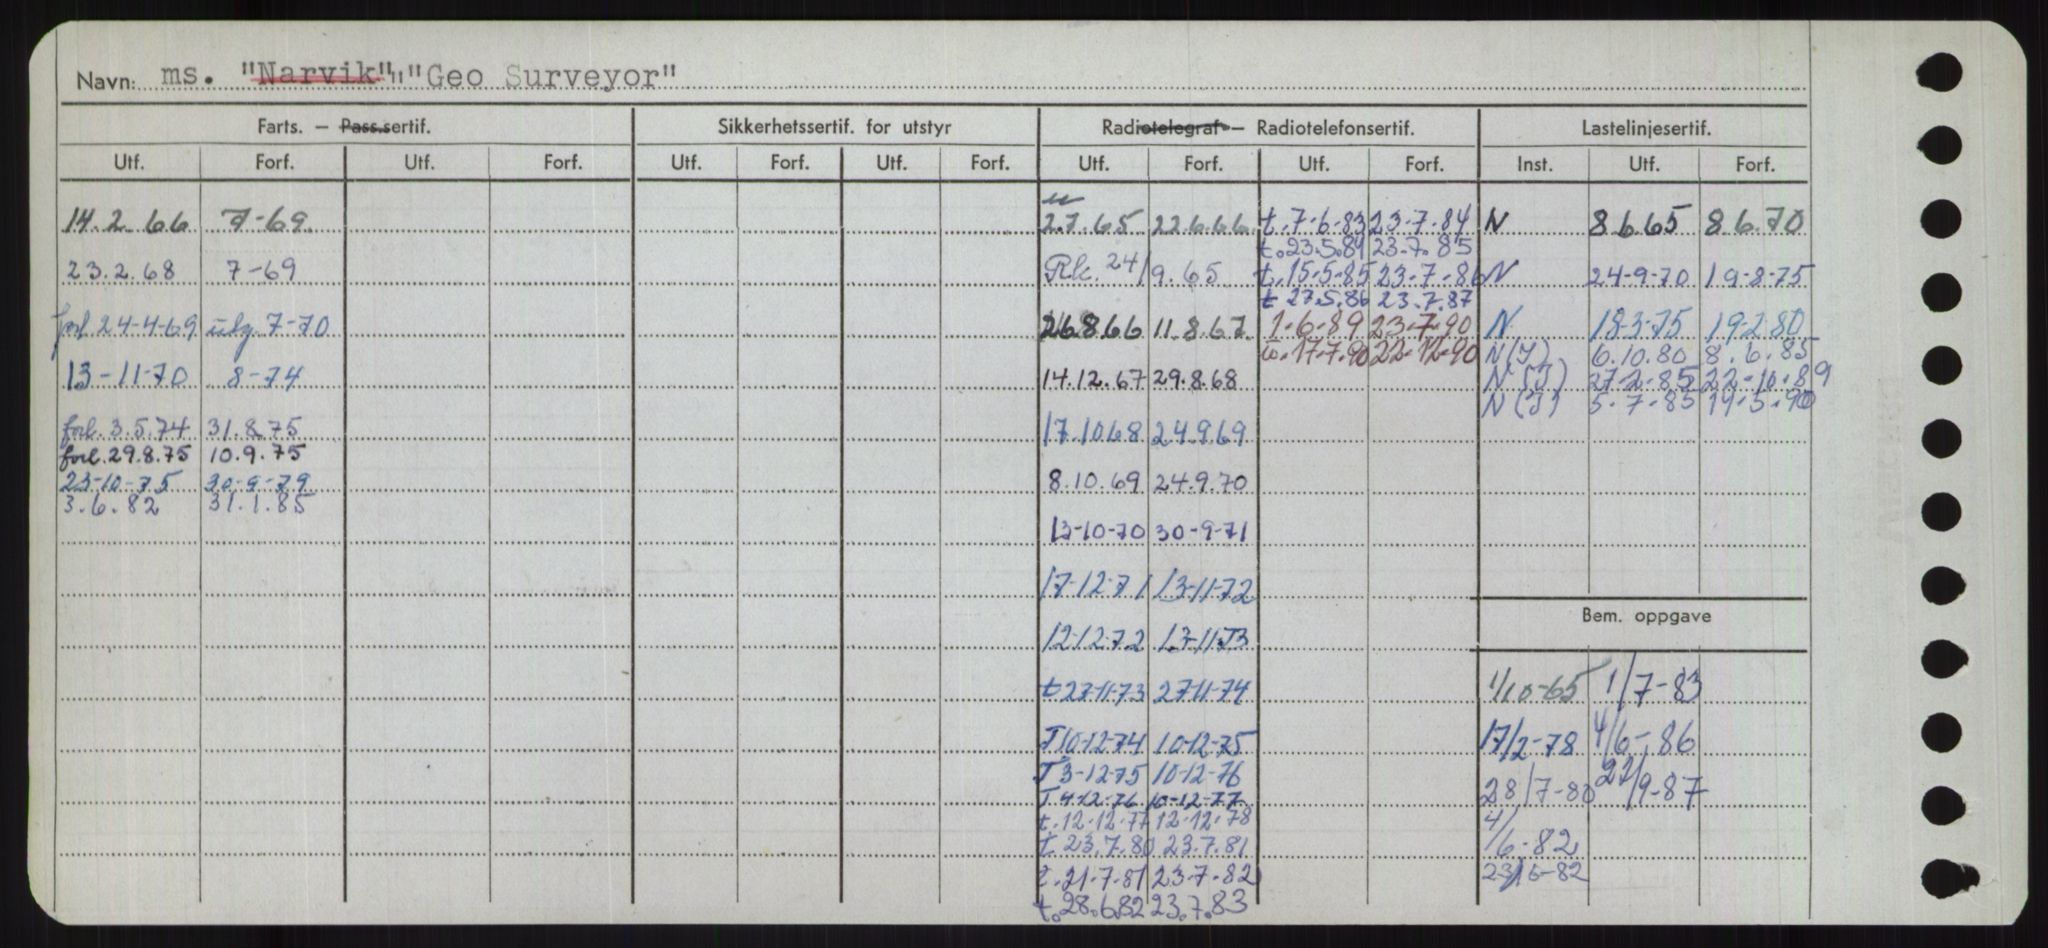 Navn: ms. "Narvik" "Geo Surveyor"
Farts. — Pass.sertif. Sikkerhetssertif. for utstyr Radiotelegraf — Radiotelefonsertif. Lastelinjesertif.
Utf. Forf. Utf. Forf. Utf. Forf. Utf. Forf. Utf. Forf. Utf. Forf. Inst. Utf. Forf.
14.2.66 7-69 2.7.65 22.6.66 t.7-6-83 23-7-84 N 8.6.65 8.6.70
t.23.5.84 23.7.85
23.2.68 7-69 Rk. 24/9.65 t.15-5-85 23-7-86 N 24-9-70 19-8-75
t 27.5.86 23.7.87
forl. 24-4-69 utg. 7-70 26.8.66 11.8.67 1-6-89 23-7-90 N 18-3-75 19-2-80
17-7-90 22-12-90 N 6.10.80 8.6.85
13-11-70 8-74 14.12.67 29.8.68 N (I) 27-2-85 22-10-89
N (I) 5-7-85
forl. 3.5.74 31.8.75 17.10.68 24.9.69
forl. 29.8.75 10.9.75
23-10-75 30-9-79 8.10.69 24.9.70
3.6.82 31.1.85
13-10-70 30-9-71
17-12-71 13-11-72
Bem. oppgave
12-12-72 13-11-73
t 27-11-73 27-11-74 1/10-65 1/7-83
T 10-12-74 10-12-75 17/2-78 4/6-86
T 3-12-75 10-12-76 28/7-80 22/9-87
T 4-12-76 10-12-77
t.12-12-77 12-12-78 4/6-82
t. 23.7.80 23.7.81
t.21-7-81 23-7-82 23/6-82
t.28.6.82 23.7.83